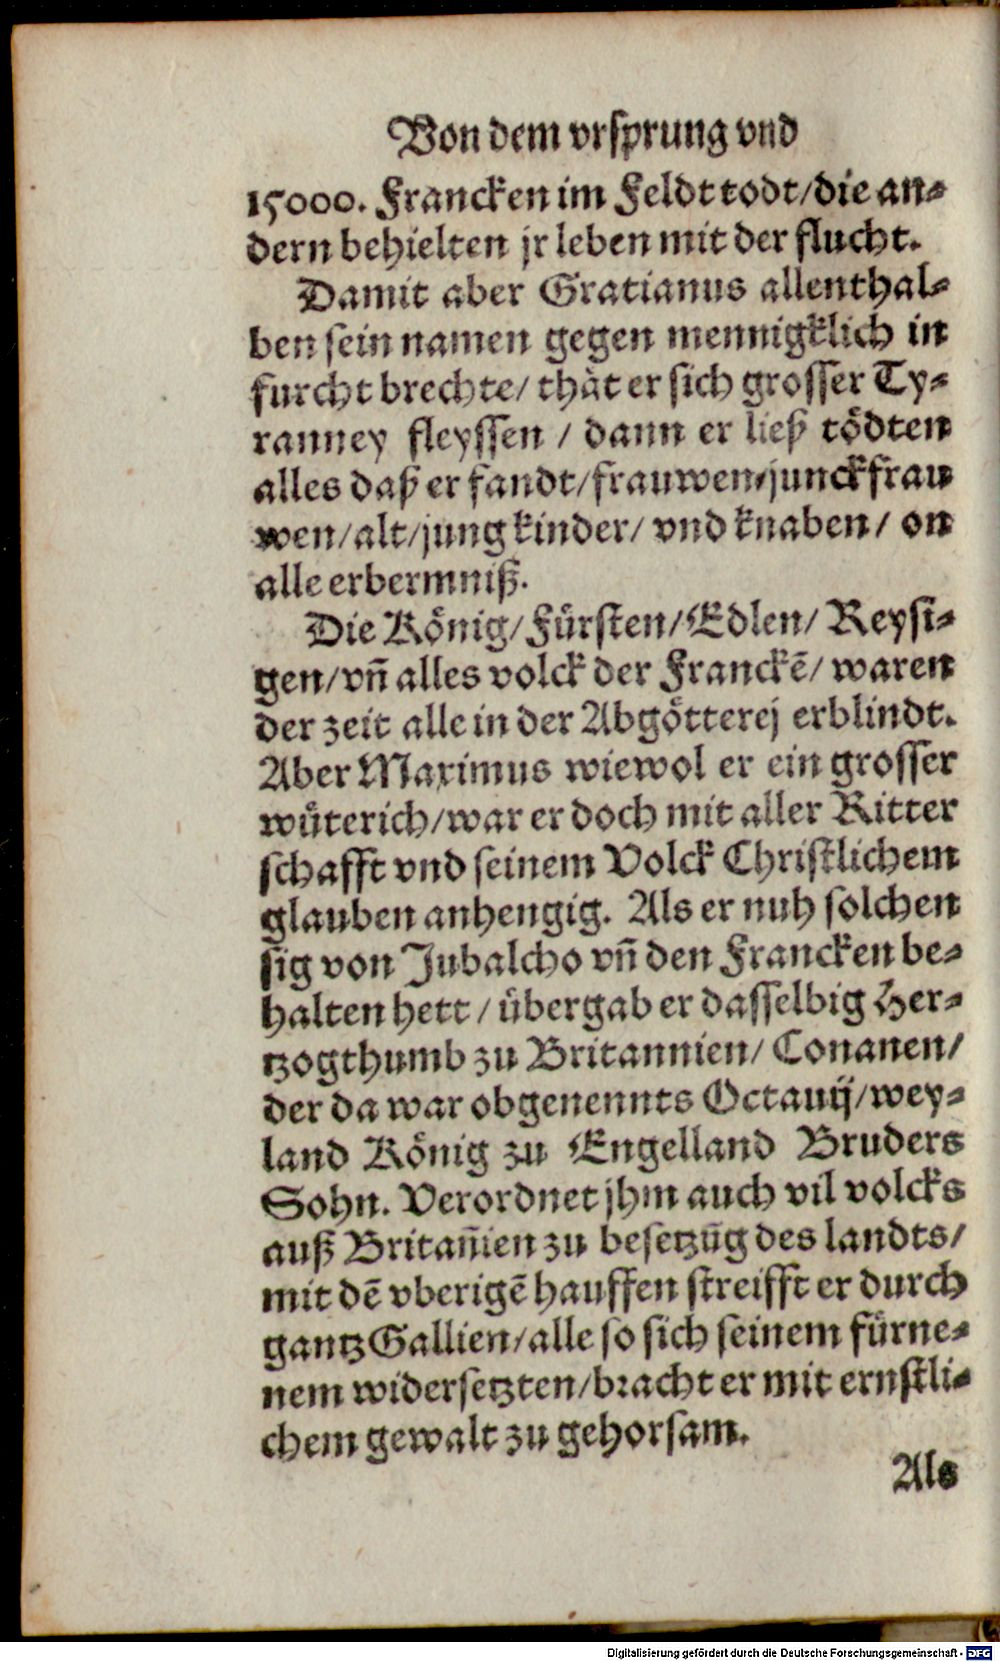 Von dem vrsprung vnd
15000. Francken im Feldt todt/die an-
dern behielten jr leben mit der flucht.
Damit aber Gratianus allenthal-
ben sein namen gegen mennigklich in
furcht brechte/ thät er sich grosser Ty-
ranney fleyssen / dann er ließ tödten
alles daß er fandt/frauwen/junckfrau
wen/alt/jung kinder/ vnd knaben/ on
alle erbermniß.
Die König/Fürsten/Edlen/ Reysi-
gen/vñ alles volck der Franckẽ/ waren
der zeit alle in der Abgötterej erblindt.
Aber Maximus wiewol er ein grosser
wüterich/war er doch mit aller Ritter
schafft vnd seinem Volck Christlichem
glauben anhengig. Als er nuh solchen
sig von Jubalcho vñ den Francken be-
halten hett / übergab er dasselbig Her-
tzogthumb zu Britannien/ Conanen/
der da war obgenennts Octauij/wey-
land König zu Engelland Bruders
Sohn. Verordnet jhm auch vil volcks
auß Britañien zu besetzũg des landts/
mit dẽ vberigẽ hauffen streifft er durch
gantz Gallien/alle so sich seinem fürne-
nem widersetzten/bracht er mit ernstli-
chem gewalt zu gehorsam.
Als
Digitalisierung gefördert durch die Deutsche Forschungsgemeinschaft - DFG